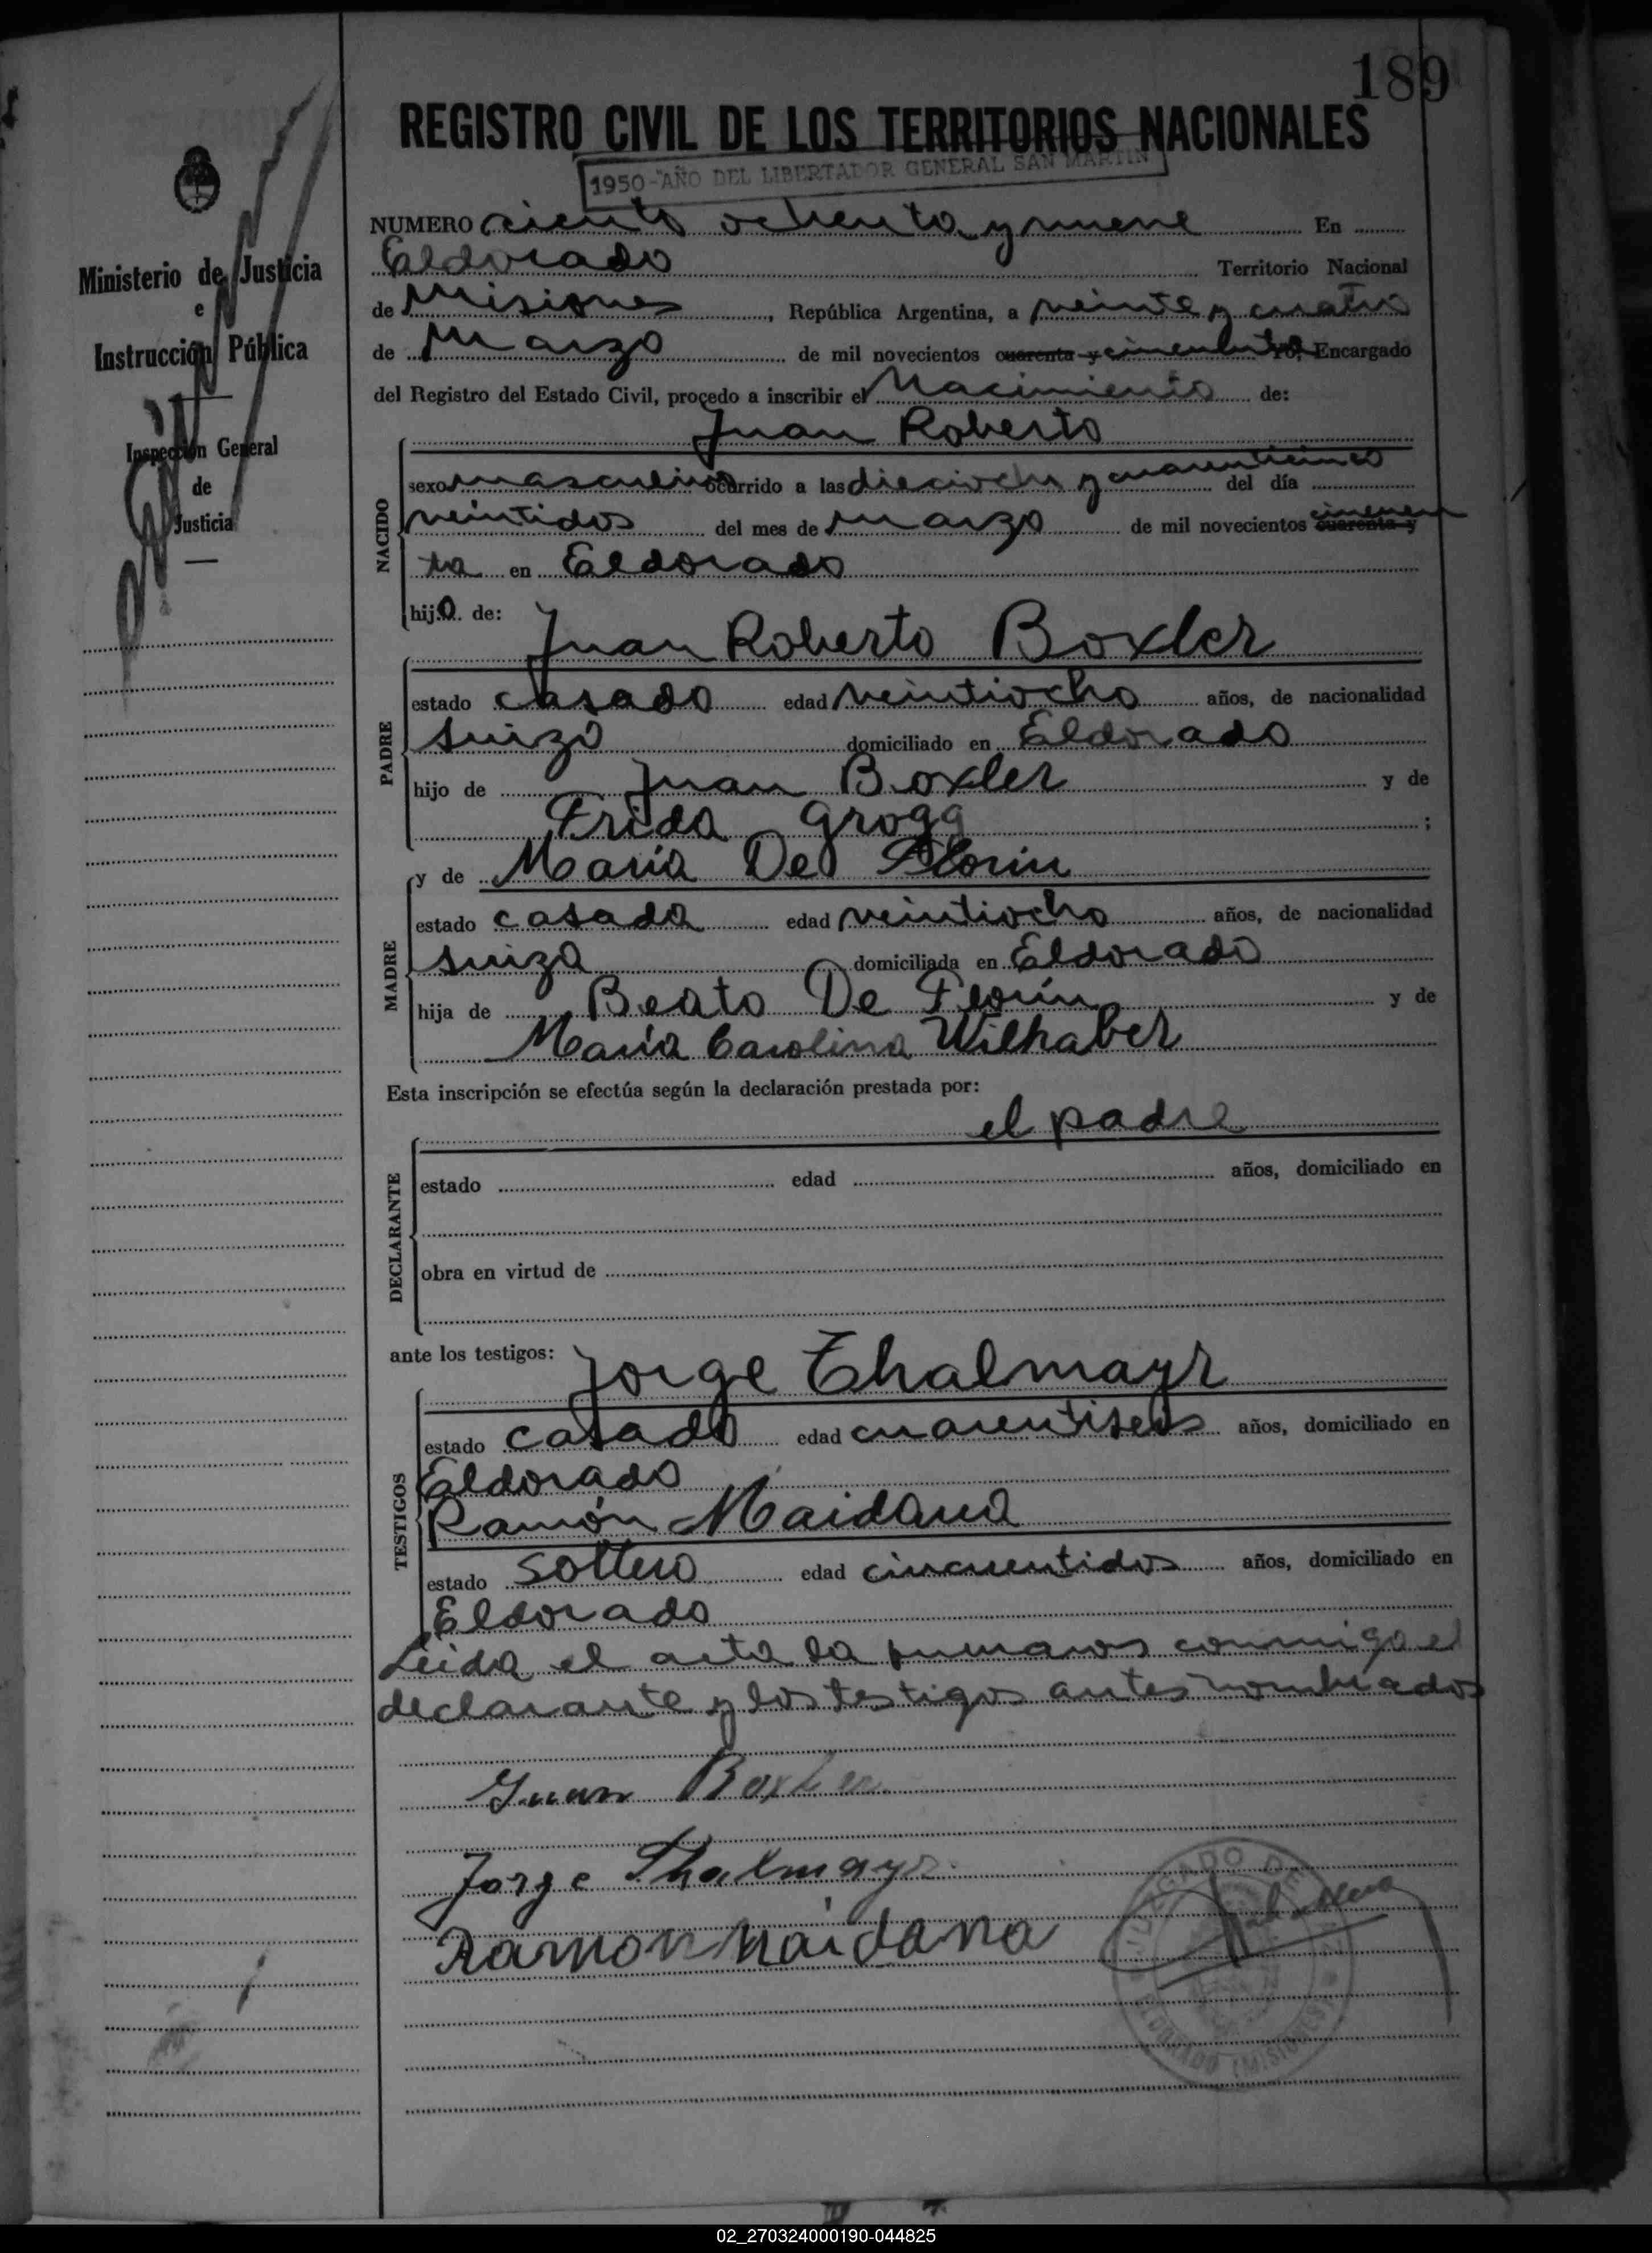 189
REGISTRO CIVIL DE LOS TERRITORIOS NACIONALES
1950-"AÑO DEL LIBERTADOR GENERAL SAN MARTIN
Ministerio de Justicia
e
Instrucción Pública
Inspección General
de
Justicia
NUMERO ciento ochenta y nueve En
Eldorado Territorio Nacional
de Misiones, República Argentina, a veinte y cuatro
de Marzo de mil novecientos cuarenta y cincuenta Yo, Encargado
del Registro del Estado Civil, procedo a inscribir el Nacimiento de:
Juan Roberto
NACIDO
sexo masculino ocurrido a las dieciocho y cuarenticinco del día
veintidos del mes de marzo de mil novecientos cuarenta y cincuen
ta en Eldorado
hijo de:
Juan Roberto Boxler
PADRE
estado casado edad veintiocho años, de nacionalidad
suizo domiciliado en Eldorado
hijo de Juan Boxler y de
Frida Grogg;
y de María De Florin
MADRE
estado casada edad veintiocho años, de nacionalidad
suiza domiciliada en Eldorado
hija de Beato De Florín y de
María Carolina Wilhaber
Esta inscripción se efectúa según la declaración prestada por:
el padre
DECLARANTE
estado edad años, domiciliado en
obra en virtud de
ante los testigos:
Jorge Thalmayr
TESTIGOS
estado casado edad cuarentiseis años, domiciliado en
Eldorado
Ramón Maidana
estado soltero edad cincuentidos años, domiciliado en
Eldorado
Leida el acta la firmaros conmigo el
declarante y los testigos antes nombrados
Juan Boxler
Jorge Thalmayr
Ramon Maidana
JUZGADO DE
ELDORADO (MISIONES)
02_270324000190-044825